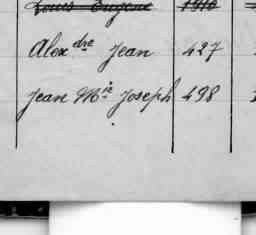 Louis Eugene 1910
Alex dre Jean 437
Jean M ie Joseph 498